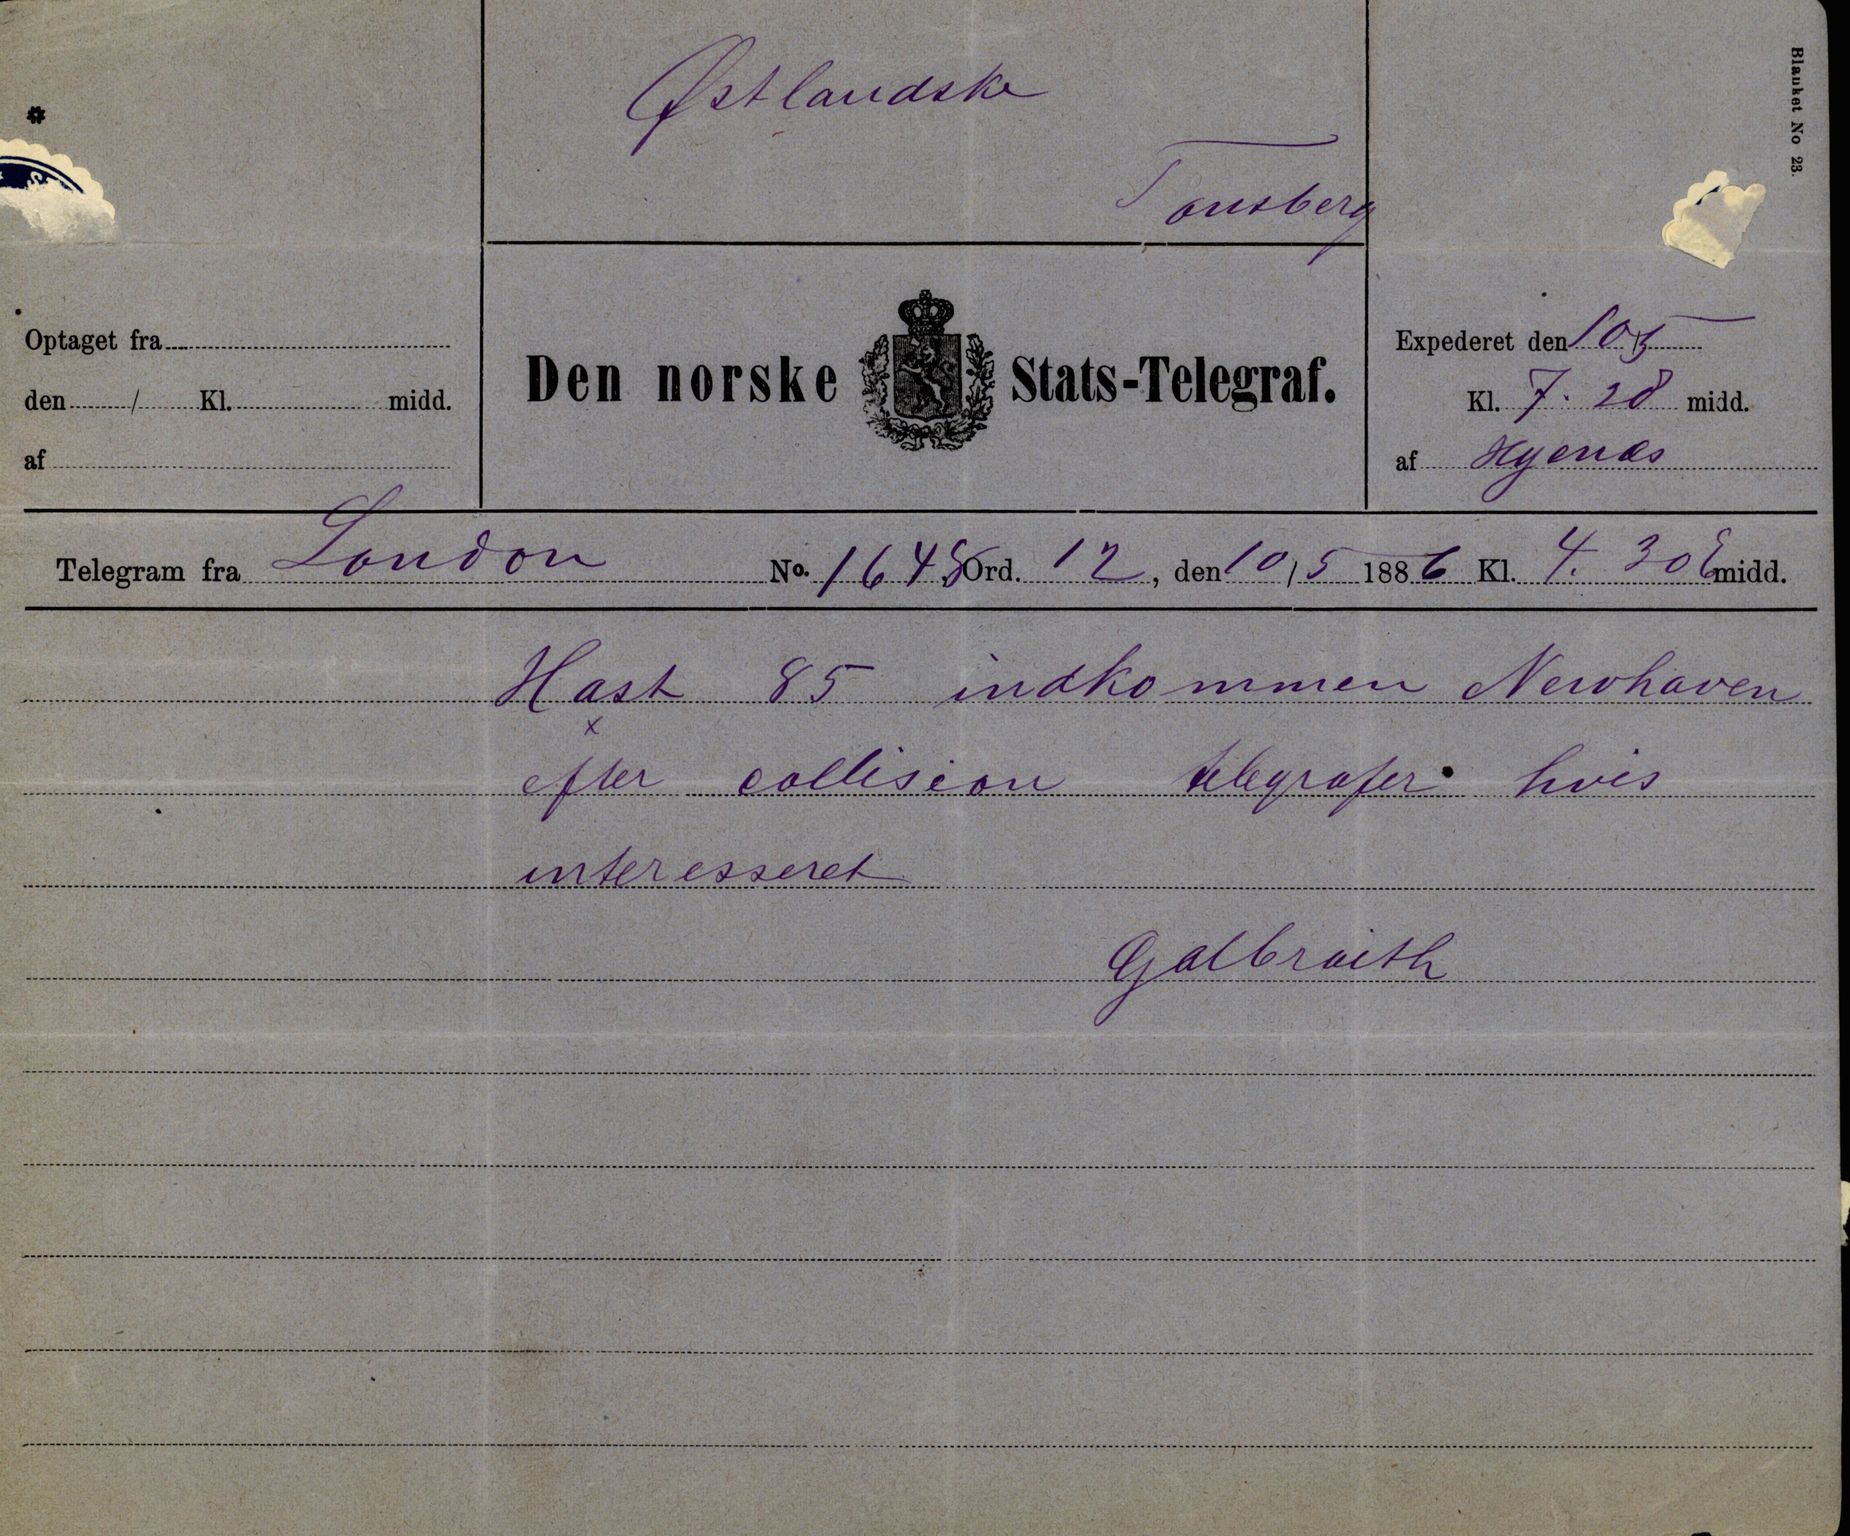 Blanket No 23.
Østlandske
Tonsberg
Optaget fra
den / Kl. midd.
af
Den norske Stats-Telegraf.
Expederet den 10/5
Kl. 7.28 midd.
af Hyenæs
Telegram fra London No. 1648 Ord. 12, den 10/5 1886 Kl. 4.30 E midd.
Hast 85 indkommen Newhaven
x
efter collision telegrafer hvis
interesseret
Galbraith